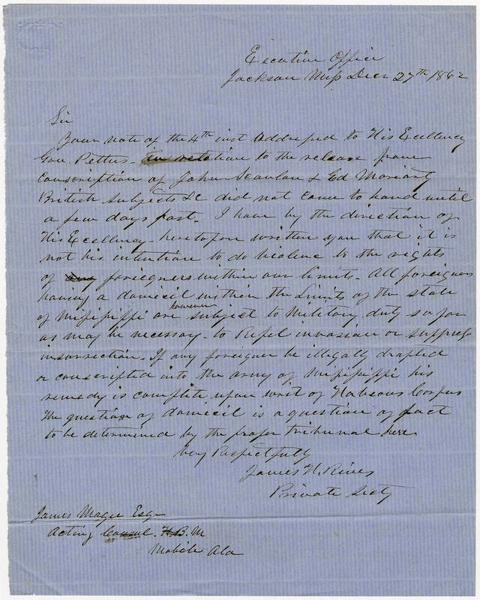 Executive Office
Jackson Miss Decr 27th 1862
Sir
Your note of the 4th inst addressed to His Excellency
Gov Pettus in relation to the release from
conscription of John Scanlan & Ed Moriarty
British subjects &c did not come to hand until
a few days past. I have by the direction of
His Excellency heretofore written you that it is
not his intention to do violence to the rights
of any foreigners within our limits. All foreigners
having a domicil within the Limits of the State
of Mississippi are however subject to Military duty so far
as may be necessary to Repel invasion or suppress
insurrection. If any foreigner be illegally drafted
or conscripted into the army of Mississippi his
remedy is complete upon writ of Habeous Corpus
The question of domicil is a question of fact
to be determined by the proper tribunal here
Very Respectfully
James H. Rives
Private Secty
James Magee Esqr
Acting Consul H.B.M
Mobile Ala